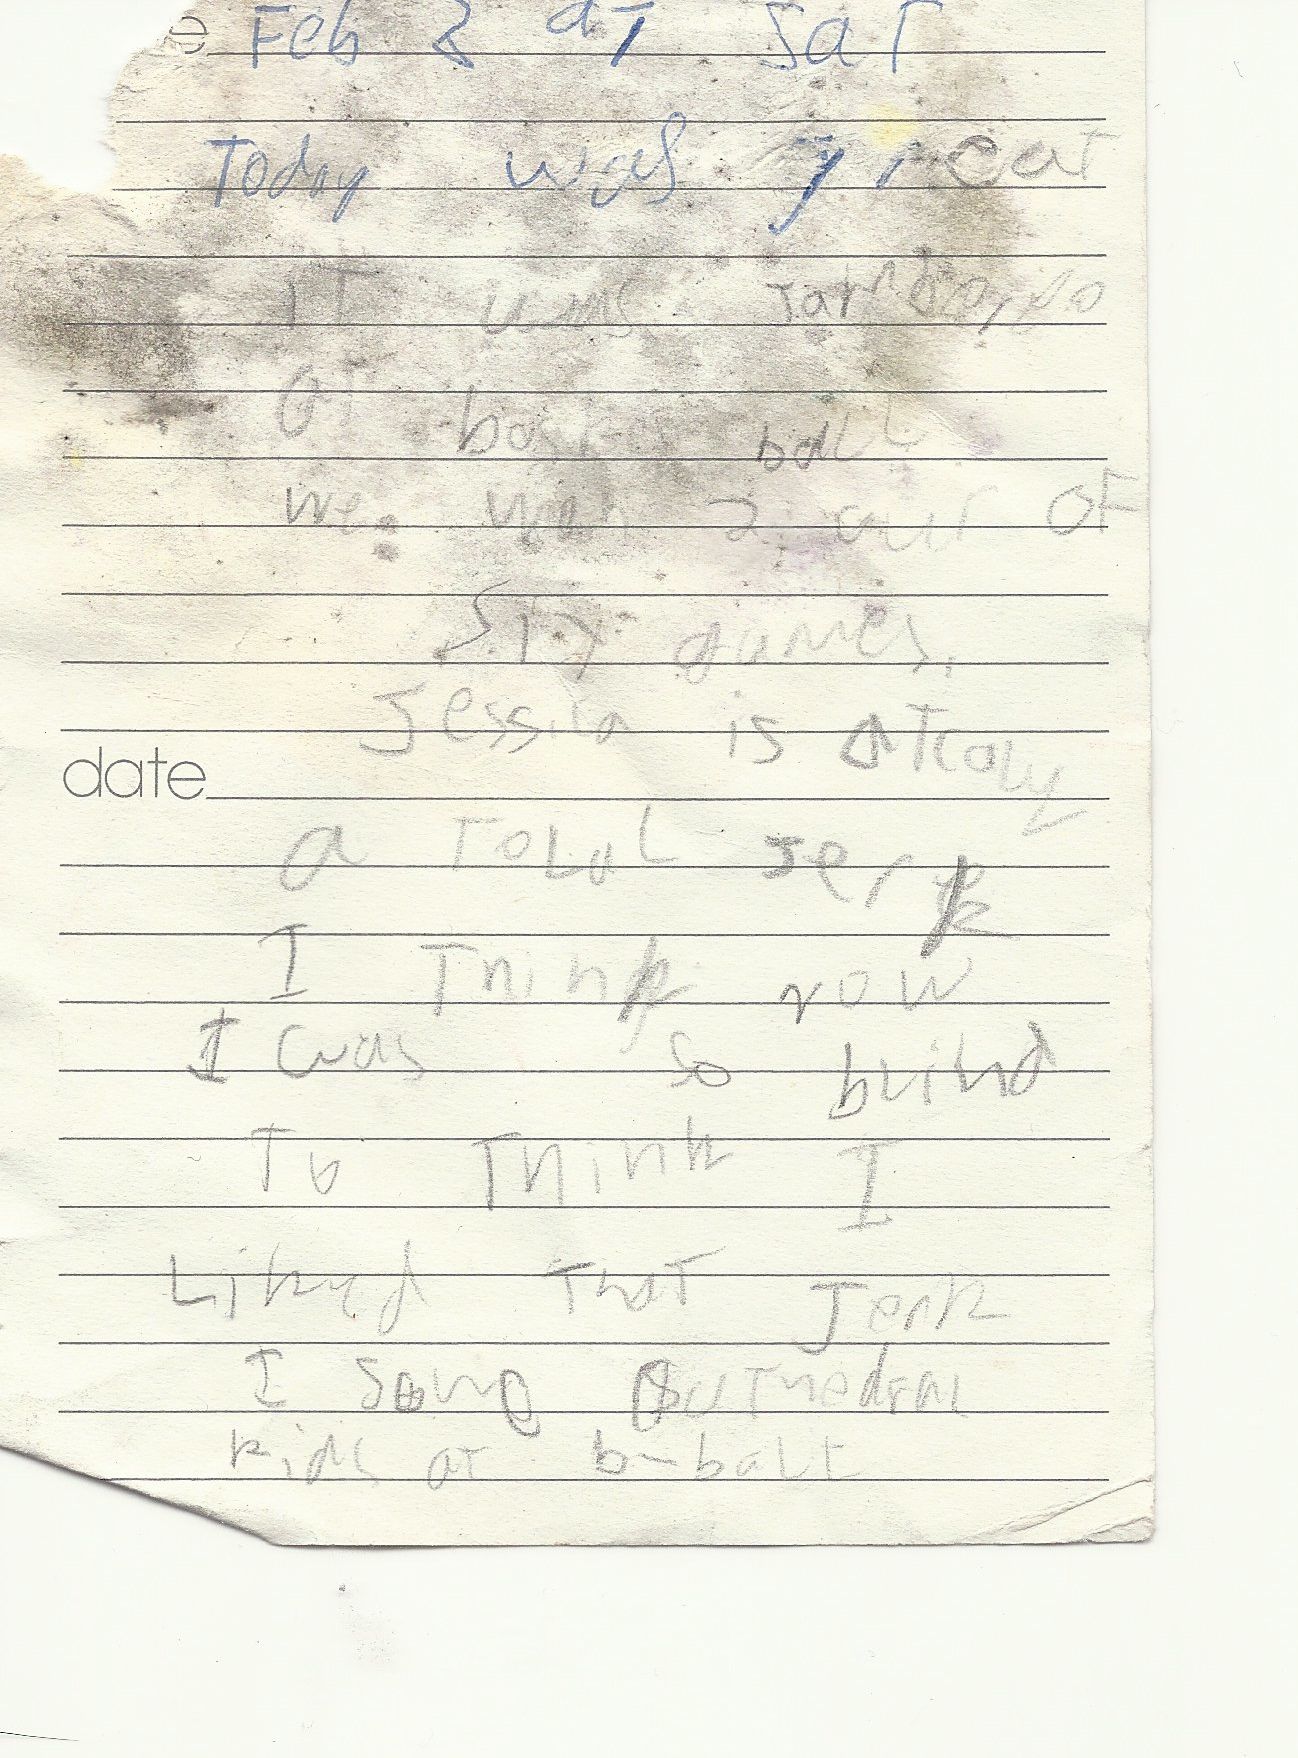 e Feb 2 at Sat
Today was great
IT was Jamboyo
OF basket ball
we won 2 out OF
six games.
Jessica is
date
a Total Jerk
I Think now
I was so blind
To Think I
Liked That Jerk
I sawd Cathedral
kids at b-ball